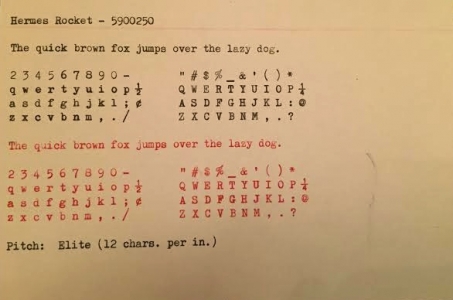 Hermes Rocket - 5900250
The quick brown fox jumps over the lazy dog.
2 3 4 5 6 7 8 9 0 - " # $ % _ & ' ( ) *
q w e r t y u i o p ½ Q W E R T Y U I O P ¼
a s d f g h j k l ; ¢ A S D F G H J K L : @
z x c v b n m , . / Z X C V B N M , . ?
The quick brown fox jumps over the lazy dog.
2 3 4 5 6 7 8 9 0 - " # $ % _ & ' ( ) *
q w e r t y u i o p ½ Q W E R T Y U I O P ¼
a s d f g h j k l ; ¢ A S D F G H J K L : @
z x c v b n m , . / Z X C V B N M , . ?
Pitch: Elite (12 chars. per in.)